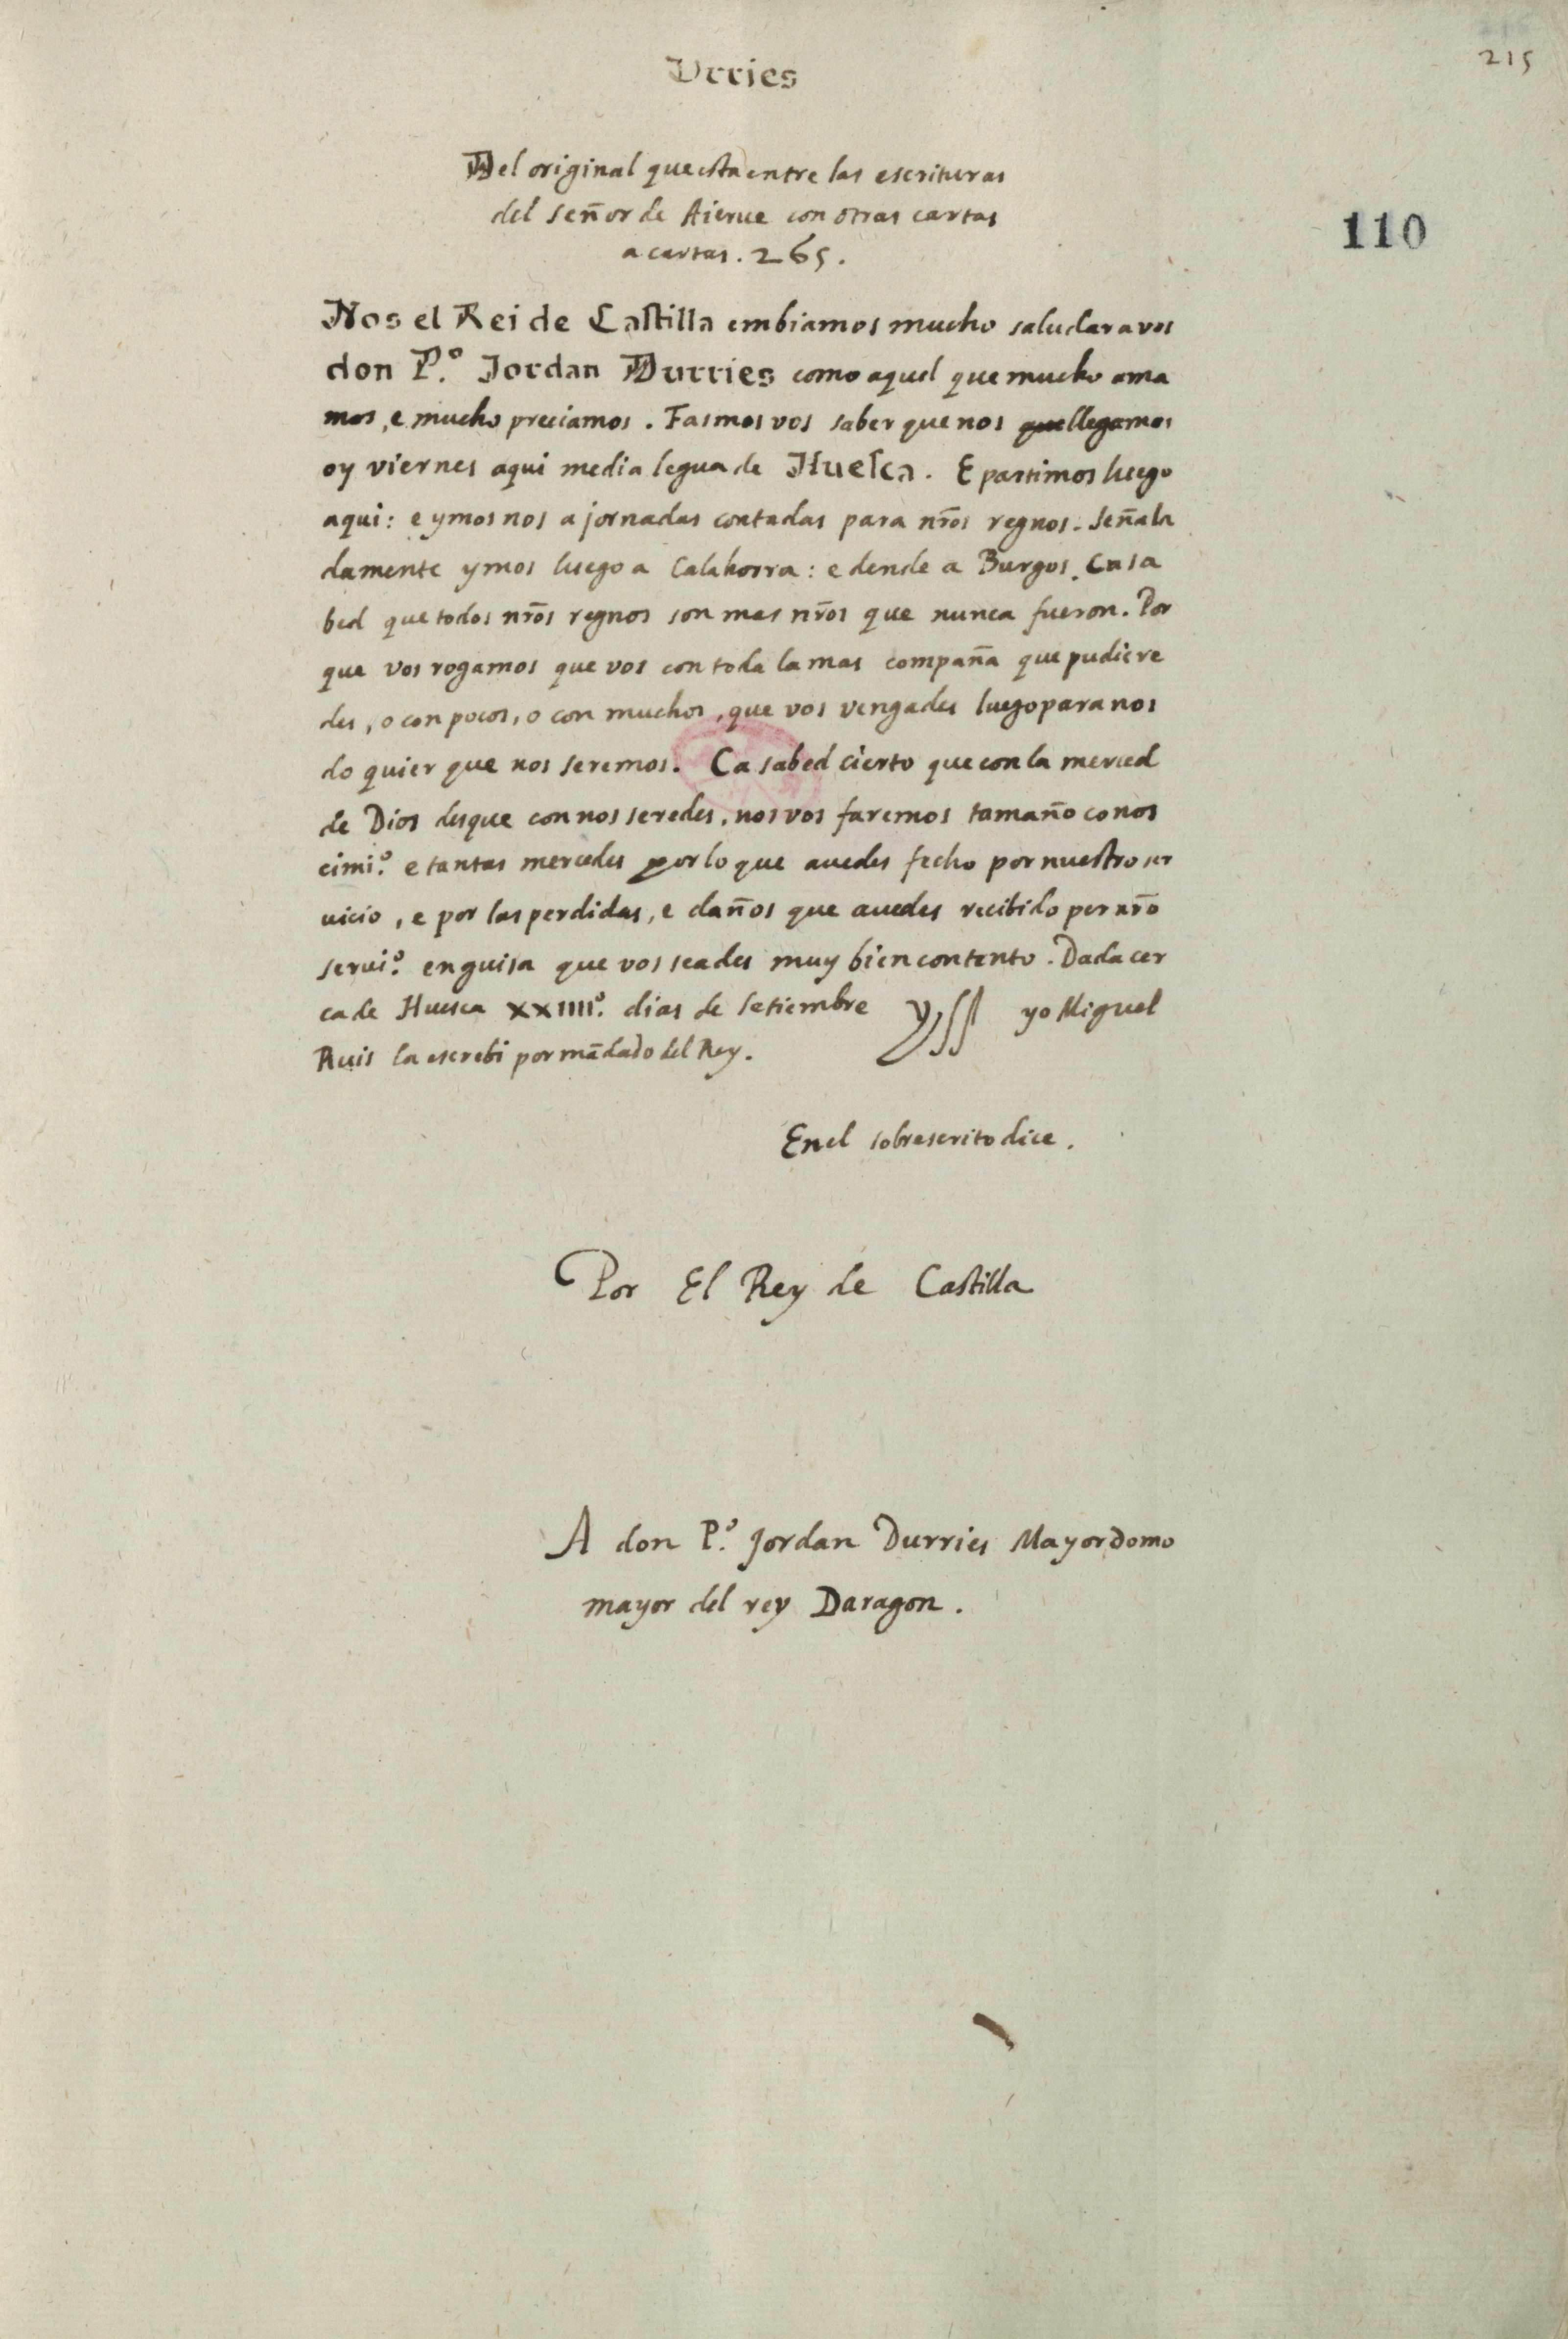 215
Vrries
110
Del original que esta entre las escrituras
del señor de Aierue con otras cartas
a cartas. 265.
Nos el Rei de Castilla embiamos mucho saludar a vos
don P.º Jordan Durries como aquel que mucho ama
mos, e mucho preciamos. Fasmos vos saber que nos que llegamos
oy viernes aqui media legua de Huesca. E partimos luego
aqui: e ymos nos a jornadas contadas para nr̃os regnos. Señala
damente ymos luego a Calahorra: e dende a Burgos. Ca sa
bed que todos nr̃os regnos son mas nr̃os que nunca fueron. Por
que vos rogamos que vos con toda la mas compaña que pudiere
des, o con pocos, o con muchos, que vos vengades luego para nos
do quier que nos seremos. Ca sabed cierto que con la merced
de Dios desque con nos seredes, nos vos faremos tamaño conos
cimi.º e tantas mercedes por lo que auedes fecho por nuestro ser
uicio, e por las perdidas, e daños que auedes recibido por nr̃o
serui.º en guisa que vos seades muy bien contento. Dada cer
ca de Huesca XXIIII.º dias de setiembre yo Miguel
Ruis la escrebi por mãdado del Rey.
En el sobrescrito dice.
Por El Rey de Castilla
A don P.º Jordan Durries Mayordomo
mayor del rey Daragon.